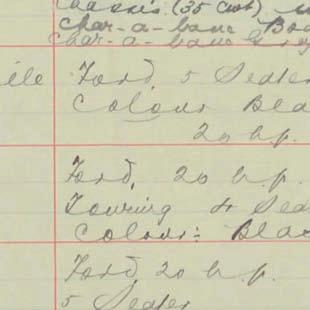 Chassis (35 cwt)
Char-a-banc Bo
Char-a-banc Grey
ile Ford 5 Seater
Colour Bla
20 h.p.
Ford, 20 h.p.
Touring 4 Sea
Colour: Bla
Ford 20 h.p.
5 Seater